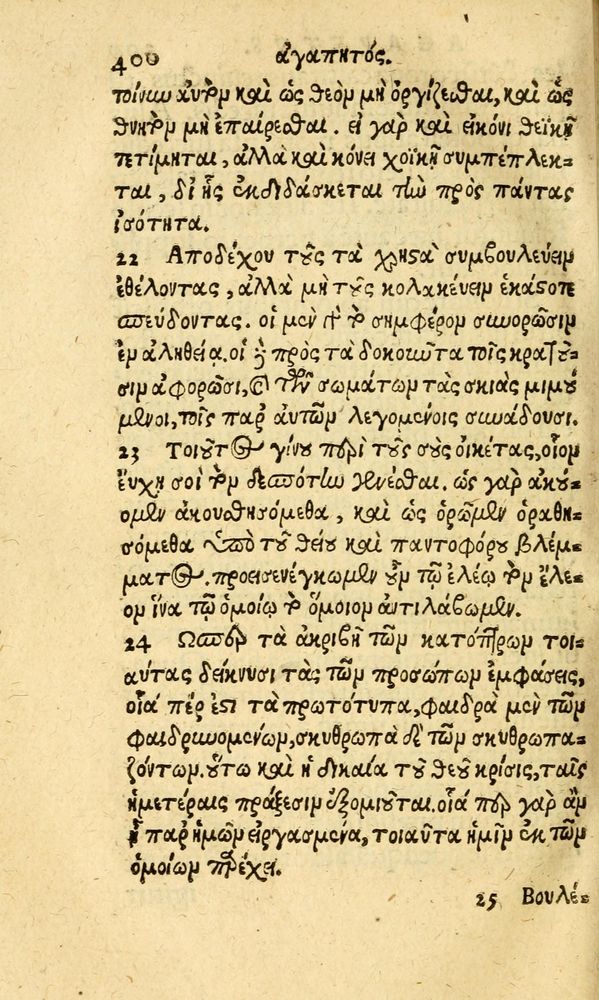 400 ἀγαπητός.
τοίνυν αὐτὸν καὶ ὡς θεὸν μὴ ὀργίζεσθαι, καὶ ὡς
θνητὸν μὴ ἐπαίρεσθαι. εἰ γὰρ καὶ εἰκόνι θεϊκῇ
πετίμηται, ἀλλὰ καὶ κόνει χοϊκῇ συμπέπλεκ-
ται, δι ἧς ἐκδιδάσκεται τὴν πρὸς πάντας
ἰσότητα.
22 Αποδέχου τοὺς τὰ χρηστὰ συμβουλεύειν
ἐθέλοντας, ἀλλὰ μὴ τοὺς κολακεύειν ἑκάστοτε
σπεύδοντας. οἱ μὲν γὰρ τὸ συμφέρον συνορῶσιν
ἐν ἀληθείᾳ. οἱ δὲ πρὸς τὰ δοκοῦντα τοῖς κρατοῦ-
σιν ἀφορῶσι, καὶ τῶν σωμάτων τὰς σκιὰς μιμού
μενοι, τοῖς παρ αὐτῶν λεγομένοις συνάδουσι.
23 Τοιοῦτος γίνου περὶ τοὺς σοὺς οἰκέτας, οἷον
εὔχῃ σοὶ τὸν δεσπότην γενέσθαι. ὡς γὰρ ἀκού-
ομεν ἀκουσθησόμεθα, καὶ ὡς ὁρῶμεν ὁραθη-
σόμεθα ὑπὸ τοῦ θείου καὶ παντοφόρου βλέμ-
ματος. προεισενέγκωμεν οὖν τῷ ἐλέῳ τὸν ἔλε-
ον ἵνα τῷ ὁμοίῳ τὸ ὅμοιον ἀντιλάβωμεν.
24 Ωσπερ τὰ ἀκριβῆ τῶν κατόπτρων τοι-
αύτας δείκνυσι τὰς τῶν προσώπων ἐμφάσεις,
οἷά πέρ ἐστι τὰ πρωτότυπα, φαιδρὰ μὲν τῶν
φαιδρυνομένων, σκυθρωπὰ δὲ τῶν σκυθρωπα-
ζόντων. οὕτω καὶ ἡ δικαία τοῦ θεοῦ κρίσις, ταῖς
ἡμετέραις πράξεσιν ἐξομοιοῦται. οἷά περ γὰρ ἂν
ᾖ παρ ἡμῶν εἰργασμένα, τοιαῦτα ἡμῖν ἐκ τῶν
ὁμοίων παρέχει.
25 Βουλέ-